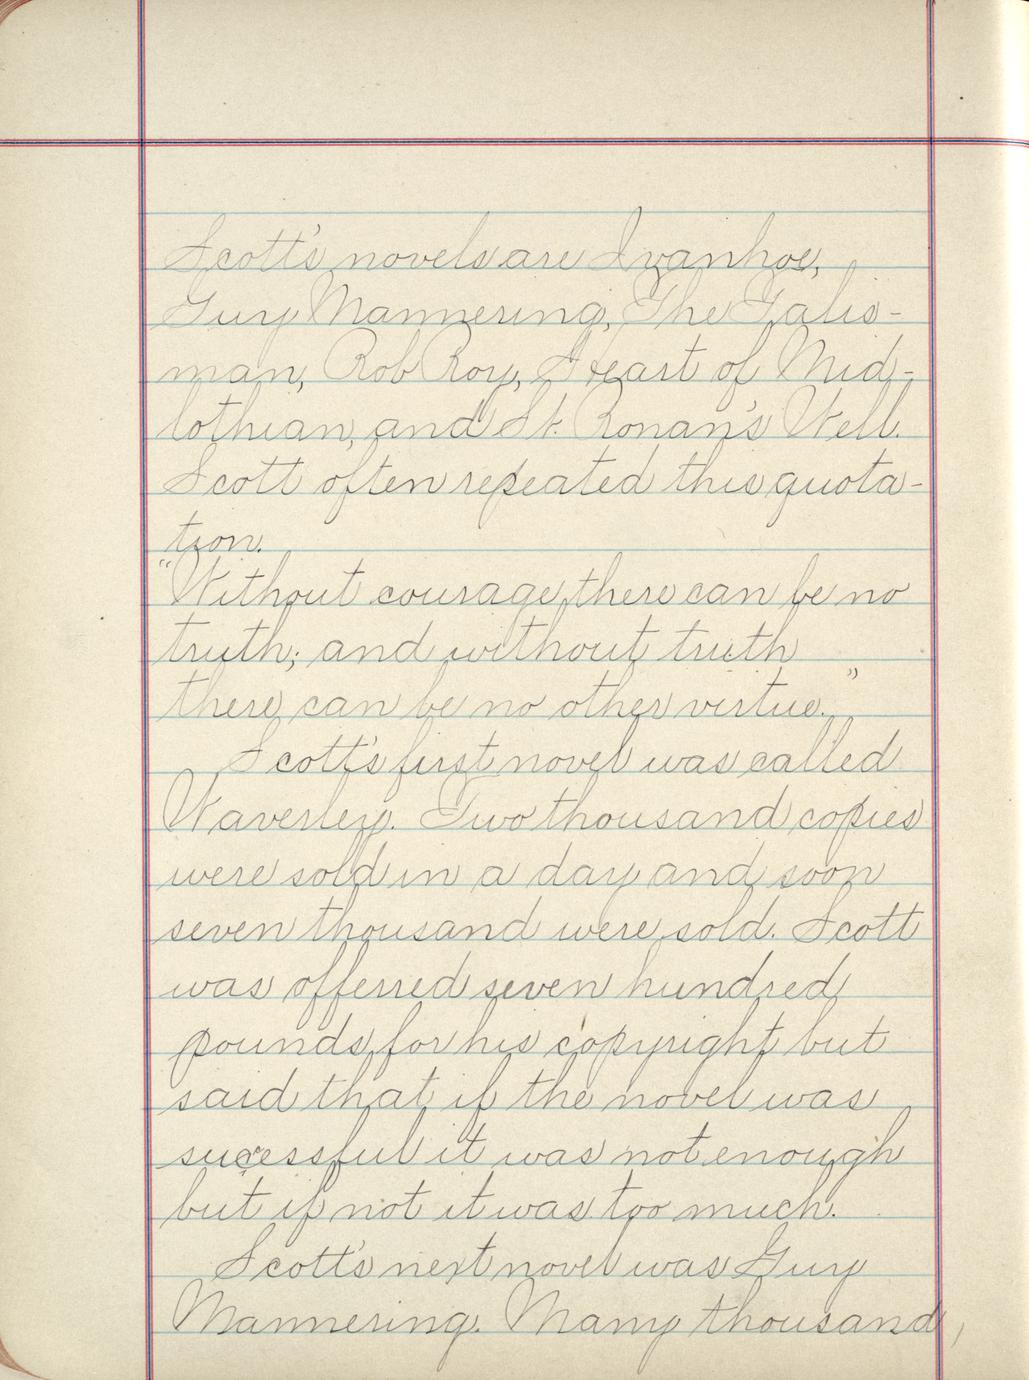 Scott's novels are Ivanhoe,
Guy Mannering, The Talis-
man, Rob Roy, Heart of Mid-
lothian, and St. Ronan's Well.
Scott often repeated this quota-
tion.
"Without courage, there can be no
truth; and without truth
there can be no other virtue."
Scott's first novel was called
Waverley. Two thousand copies
were sold in a day and soon
seven thousand were sold. Scott
was offerred seven hundred
pounds for his copyright but
said that if the novel was
sucessful it was not enough
but if not it was too much.
Scott's next novel was Guy
Mannering. Many thousand,